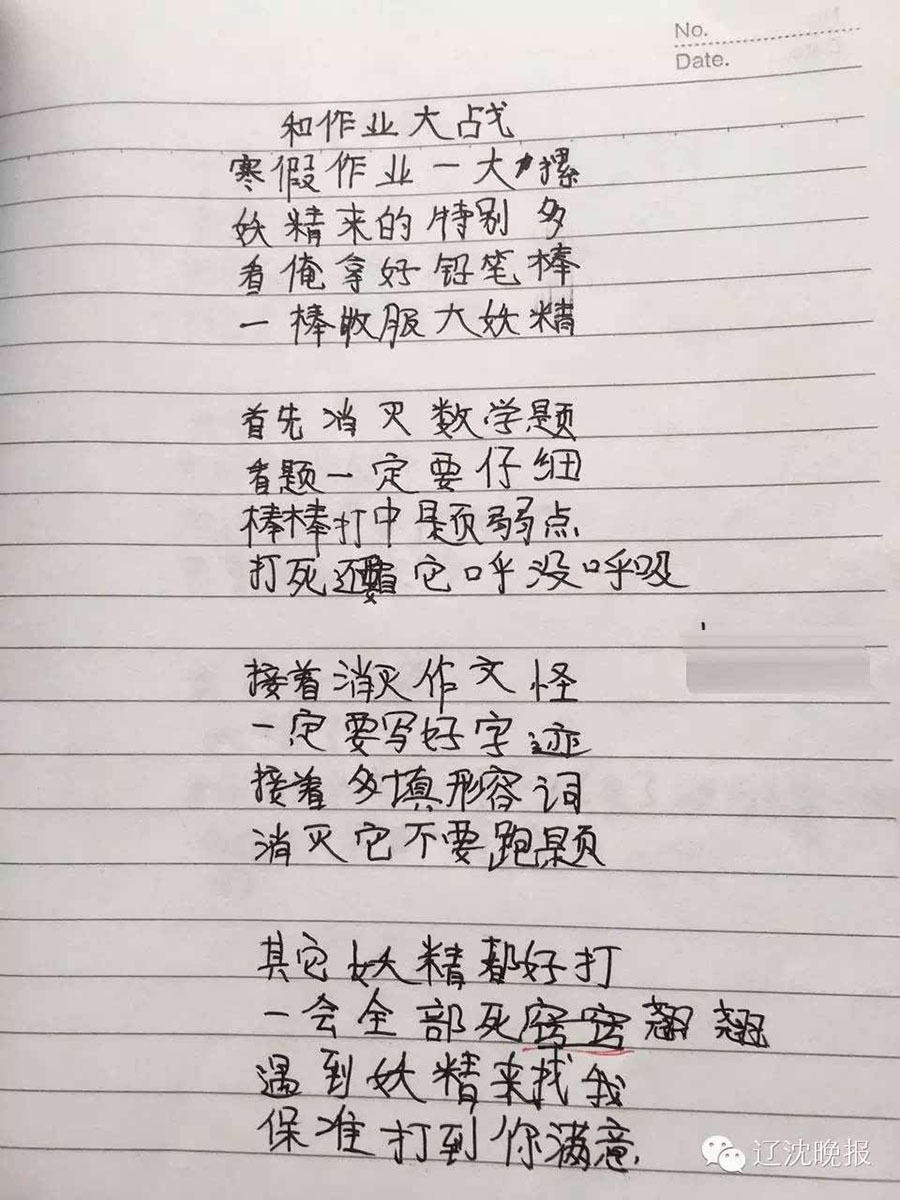 No.
Date.
和作业大战
寒假作业一大摞
妖精来的特别多
看俺拿好铅笔棒
一棒收服大妖精
首先消灭数学题
看题一定要仔细
棒棒打中题弱点
打死还要看它呼没呼吸
接着消灭作文怪
一定要写好字迹
接着多填形容词
消灭它不要跑题
其它妖精都好打
一会全部死窍窍翘翘
遇到妖精来找我
保准打到你满意
辽沈晚报